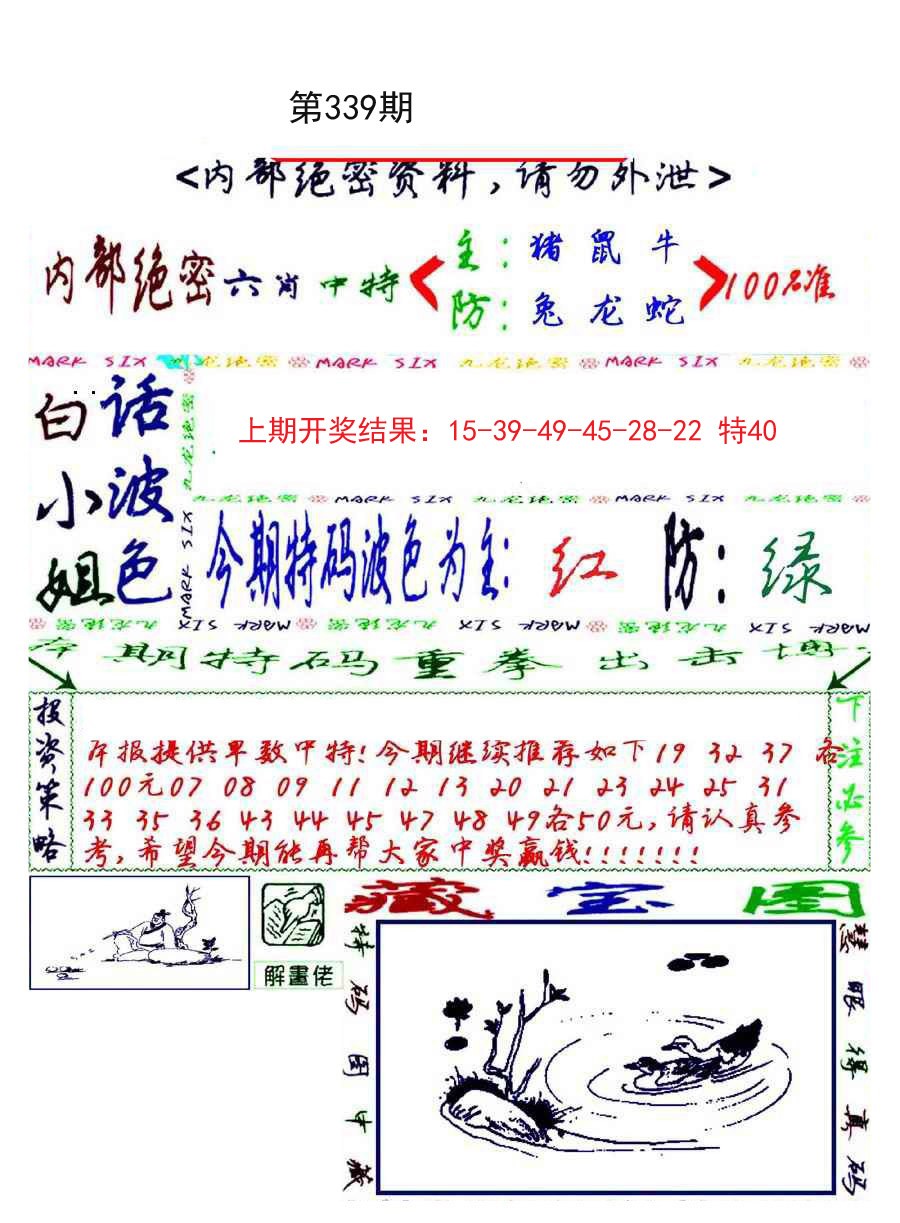 第339期
<内部绝密资料,请勿外泄>
内部绝密六肖中特
主:猪 鼠 牛
防:兔 龙 蛇
100%准
MARK SIX 九龙绝密 MARK SIX 九龙绝密 MARK SIX 九龙绝密
白小姐
话波色
九龙绝密
MARK SIX
上期开奖结果：15-39-49-45-28-22 特40
九龙绝密 MARK SIX 九龙绝密 MARK SIX 九龙绝密
今期特码波色为主: 红 防: 绿
九龙绝密 MARK SIX 九龙绝密 MARK SIX 九龙绝密 MARK SIX
期特码重拳出击
投资策略
本报提供早数中特!今期继续推荐如下19 32 37 各
100元07 08 09 11 12 13 20 21 23 24 25 31
33 35 36 43 44 45 47 48 49各50元,请认真参
考,希望今期能再帮大家中奖赢钱!!!!!!!
下注必参
解畫佬
藏宝图
特码图中藏
慧眼得真码